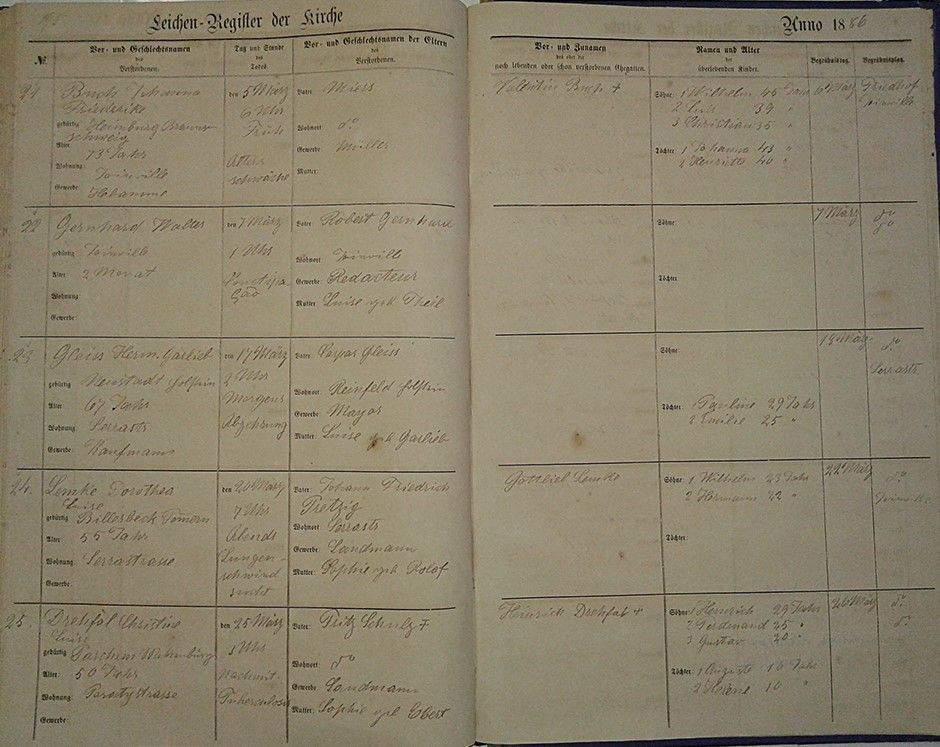 Leichen-Register der Kirche
№
Vor- und Geschlechtsnamen
des
Verstorbenen.
Tag und Stunde
des
Todes
Vor- und Geschlechtsnamen der Eltern
des
Verstorbenen.
Anno 1886
Vor- und Zunamen
des oder der
noch lebenden oder schon verstorbenen Ehegatten.
Namen und Alter
der
überlebenden Kinder.
Begräbnißtag.
Begräbnißplatz.
Buch Johanna
Friederike
gebürtig Heimburg Braun-
schweig
Alter 73 Jahr
Wohnung: Joinville
Gewerbe: Hebamme
den 5 März
6 Uhr
Früh
Alters
schwäche
Vater: Miers
Wohnort: do
Gewerbe Müller
Mutter:
Valentin Buch +
Söhne: 1 Wilhelm 45 Jahr
2 39 "
3 Christian 35 "
Töchter 1 Johanna 43 "
2 Henriette 40 "
6 März
Friedhof
Joinville
22
Gernhard Walter
gebürtig Joinville
Alter 2 Monat
Wohnung:
Gewerbe:
den 7 März
1 Uhr
Constipa-
ção
Vater: Robert Gernhard
Wohnort Joinville
Gewerbe: Redacteur
Mutter Luise geb Theil
Söhne:
Töchter:
7 März
do
do
23
Gleiss Herm. Garlieb
gebürtig Neustadt Holstein
Alter 67 Jahr
Wohnung: Serrastr
Gewerbe: Kaufmann
den 17 März
2 Uhr
Morgens
Abzehrung
Vater: Caspar Gleiss
Wohnort: Reinfeld Holstein
Gewerbe: Mayor
Mutter: Luise geb Garlieb
Söhne:
Töchter: 1 Pauline 29 Jahr
2 Emilie 25 "
18 März
do
Serrastr
24.
Lemke Dorothea
Luise
gebürtig Billerbeck Pomern
Alter 55 Jahr
Wohnung: Serrastrasse
Gewerbe:
den 20 März
7 Uhr
Abends
Lungen-
schwind
sucht
Vater: Johann Friedrich
Pretzig
Wohnort: Serrastr
Gewerbe: Landmann
Mutter: Sophie geb Rolof
Gottlieb Lemke
Söhne: 1 Wilhelm 23 Jahr
2 Hermann 22 "
Töchter:
22 März
do
Joinville
25.
Drefahl Christine
Luise
gebürtig Parchim
Alter: 50 Jahr
Wohnung:
Gewerbe:
den 25 März
1 Uhr
Nachmit.
Tuberculose
Vater: Fritz Schulz +
Wohnort: do
Gewerbe: Landmann
Mutter: Sophie geb Ebert
Heinrich Drefahl +
Söhne: 1 Heinrich 29 Jahr
2 Ferdinand 25 "
3 Gustav 20 "
Töchter: 1 Auguste 16 Jahr
2 Helene 10 "
26 März
do
do